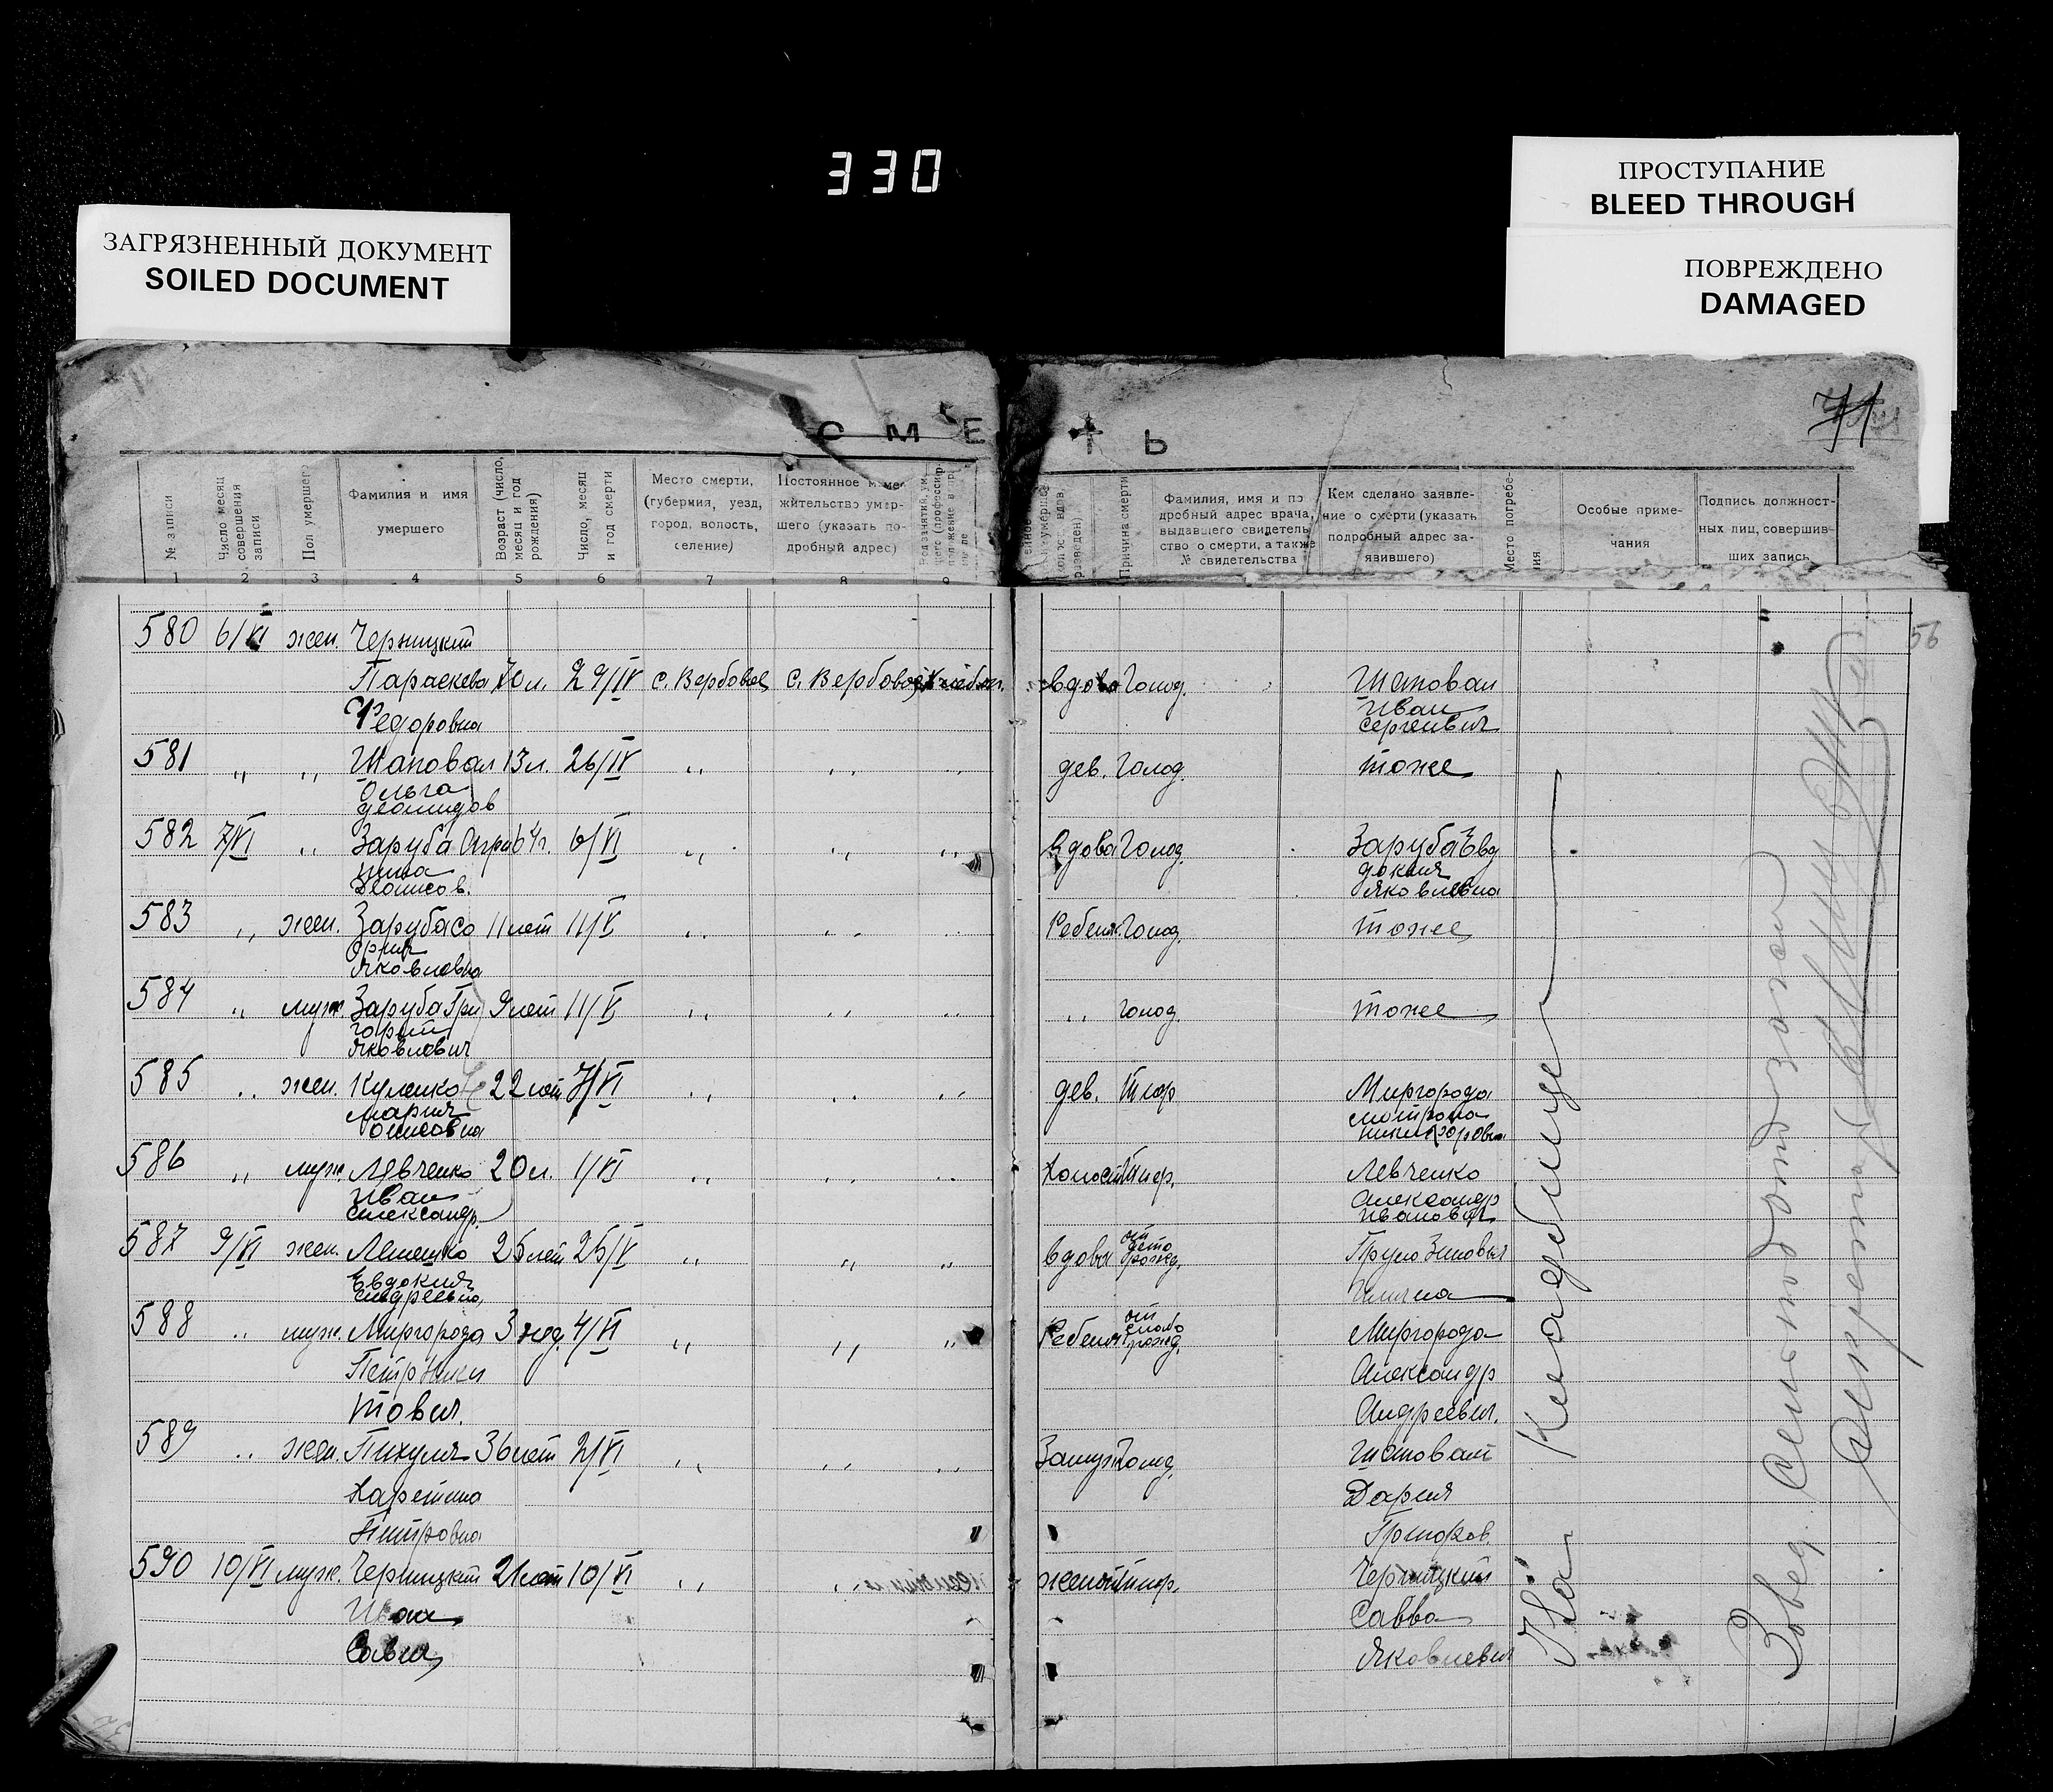 330
ЗАГРЯЗНЕННЫЙ ДОКУМЕНТ
SOILED DOCUMENT
ПРОСТУПАНИЕ
BLEED THROUGH
ПОВРЕЖДЕНО
DAMAGED
71
С М Е Р Т Ь
№ записи
Число месяц совершения записи
Пол умершего
Фамилия и имя умершего
Возраст (число, месяц и год рождения)
Число, месяц и год смерти
Место смерти, (губерния, уезд, город, волость, селение)
Постоянное место жительство умершего (указать подробный адрес)
Причина смерти
Фамилия, имя и подробный адрес врача, выдавшего свидетельство о смерти, а также № свидетельства
Кем сделано заявление о смерти (указать подробный адрес заявившего)
Место погребения
Особые примечания
Подпись должностных лиц, совершивших запись
1 2 3 4 5 6 7 8 9
56
580 6/VI жен. Черницкий
Параскева 70 л. 29/IV с. Вербовое с. Вербовое вдова Голод. Шаповал
Федоровна Иван
Сергеевич
581 " " Шаповал 13 л. 26/IV " " " дев. Голод. тоже
Ольга
582 7/VI " Заруба Агри 64 г. 6/VI " " " Вдова Голод. Заруба Евд
пина докия
Денисов. Яковлевна
583 " жен. Заруба 11 лет 11/V " " " Ребенк Голод. тоже
Яковлевна
584 " муж. Заруба Гри 9 лет 11/V " " " " голод. тоже
горий
Яковлевич
585 " жен. 22 лет 7/VI " " " дев. Тиф Миргорода
Мария Мотрона
Никифоровн
586 " муж. Левченко 20 л. 1/VI " " " Холост Тиф. Левченко
Иван Александр
Александр. Иванович
587 9/VI жен. 25 лет 25/V " " " вдова от
Евдокия
Андреевна
588 " муж. Миргорода 3 нед. 4/VI " " " Ребенк от Миргорода
Петр Александр
Андреевич.
589 " жен. Пихуля 36 лет 2/VI " " " Замуж Голод. Шаповал
Дария
Петровна Григоров.
590 10/VI муж. Черницкий 21 лет 10/VI " " женат Тиф. Черницкий
Иван Савва
Савич Яковлевич
На Кладбище
Завед.
Секретарь